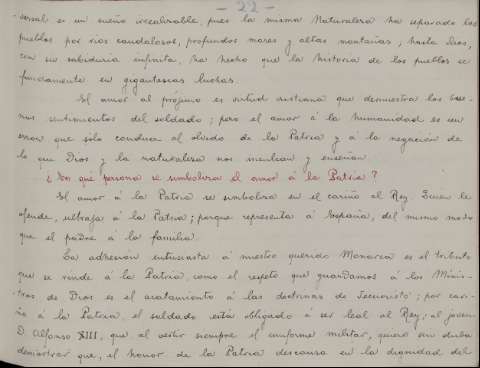 - 22 -
versal es un sueño irrealizable, pues la misma Naturaleza ha separado los
pueblos por rios caudalosos, profundos mares y altas montañas; hasta Dios,
con su sabiduria infinita, ha hecho que la historia de los pueblos se
fundamente en gigantescas luchas.
El amor al prójimo es virtud cristiana que demuestra los bue-
nos sentimientos del soldado; pero el amor á la humanidad es un
error que sólo conduce al olvido de la Patria y á la negación de
lo que Dios y la naturaleza nos inculcan y enseñan.
¿En qué persona se simboliza el amor á la Patria?
El amor á la Patria se simboliza en el cariño al Rey. Quien le
ofende, ultraja á la Patria; porque representa á España, del mismo modo
que el padre á la familia.
La adhesion entusiasta á nuestro querido Monarca es el tributo
que se rinde á la Patria, como el respeto que guardamos á los Minis-
tros de Dios es el acatamiento á las doctrinas de Jesucristo; por cari-
ño á la Patria, el soldado está obligado á ser leal al Rey; al joven
D. Alfonso XIII, que al vestir siempre el uniforme militar, quiere sin duda
demostrar que, el honor de la Patria descansa en la dignidad del